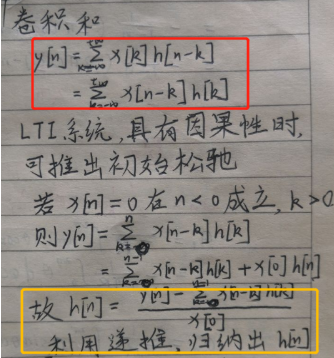 卷积和
y[n]=∑_{k=-∞}^{+∞} x[k] h[n-k]
=∑_{k=-∞}^{+∞} x[n-k] h[k]
LTI系统,具有因果性时,
可推出初始松驰
若 x[n]=0 在 n<0 成立, k>0
则 y[n]=∑_{k=0}^{n} x[n-k] h[k]
=∑_{k=0}^{n-1} x[n-k] h[k] + x[0] h[n]
故 h[n]=(y[n]-∑_{k=0}^{n-1} x[n-k] h[k])/x[0]
利用递推,归纳出 h[n]